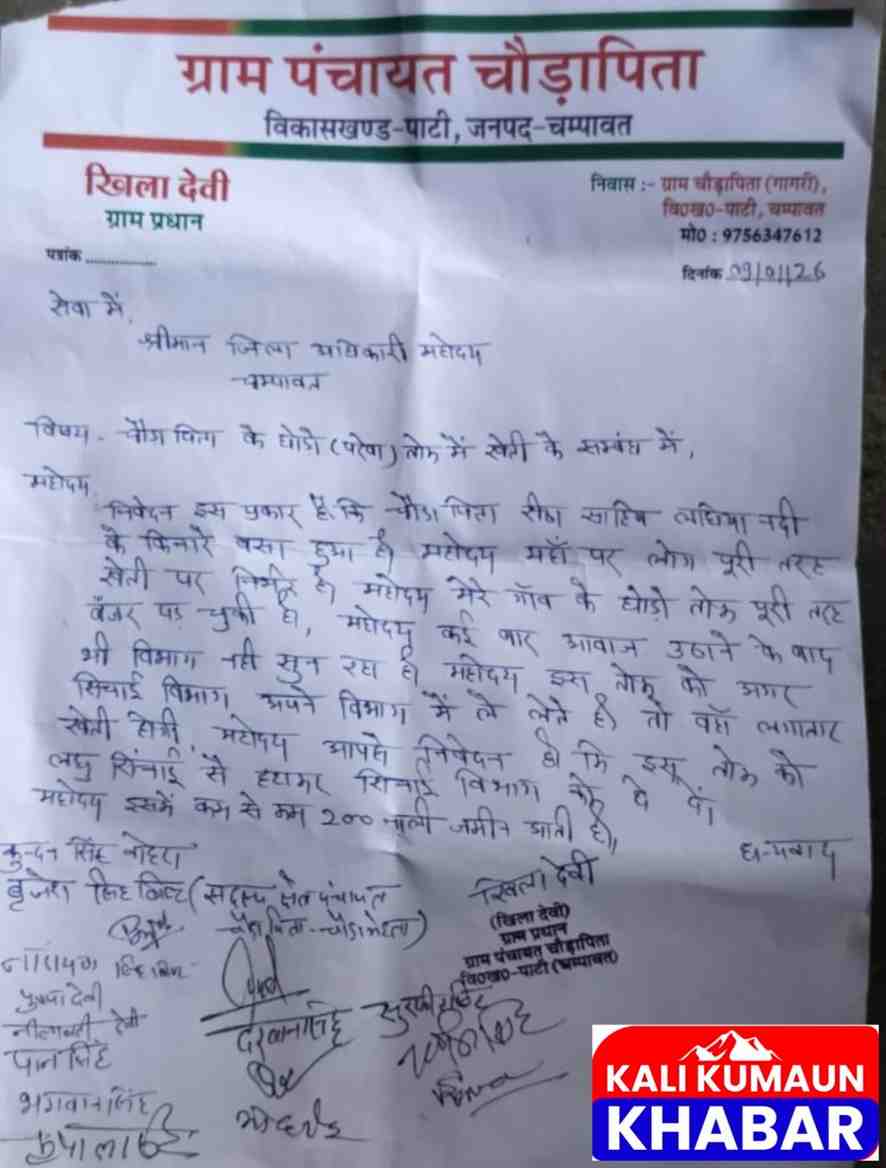 ग्राम पंचायत चौड़ापिता
विकासखण्ड-पाटी, जनपद-चम्पावत
खिला देवी
ग्राम प्रधान
निवास :- ग्राम चौड़ापिता (गागरी),
वि0ख0-पाटी, चम्पावत
मो0 : 9756347612
पत्रांक ..................
दिनांक 09/01/26
सेवा में,
श्रीमान जिला अधिकारी महोदय
चम्पावत
विषय - चौडा पिता के घोडो (परेवा) तोक में खेती के सम्बंध में,
महोदय,
निवेदन इस प्रकार है कि चौडा पिता रीठा साहिब लधिया नदी
के किनारे बसा हुआ है। महोदय यहाँ पर लोग पूरी तरह
खेती पर निर्भर है। महोदय मेरे गाँव के घोडो तोक पूरी तरह
बंजर पड़ चुकी है, महोदय कई बार आवाज उठाने के बाद
भी विभाग नही सुन रहा है। महोदय इस तोक को अगर
सिचाई विभाग अपने विभाग में ले लेते है। तो वहाँ लगातार
खेती होगी, महोदय आपसे निवेदन है कि इस तोक को
लघु सिंचाई से हटाकर सिचाई विभाग को दे दें।
महोदय इसमें कम से कम 200 नाली जमीन आती है।,
धन्यवाद
कुन्दन सिंह बोहरा
बृजेश सिंह बिष्ट (सदस्य क्षेत्र पंचायत
चौडा पिता - चौडामेहता)
खिला देवी
(खिला देवी)
ग्राम प्रधान
ग्राम पंचायत चौड़ापिता
वि0ख0-पाटी (चम्पावत)
नारायण सिंह
पुष्पा देवी
लीलावती देवी
पान सिंह
दरबान सिंह
भगवान सिंह
KALI KUMAUN
KHABAR